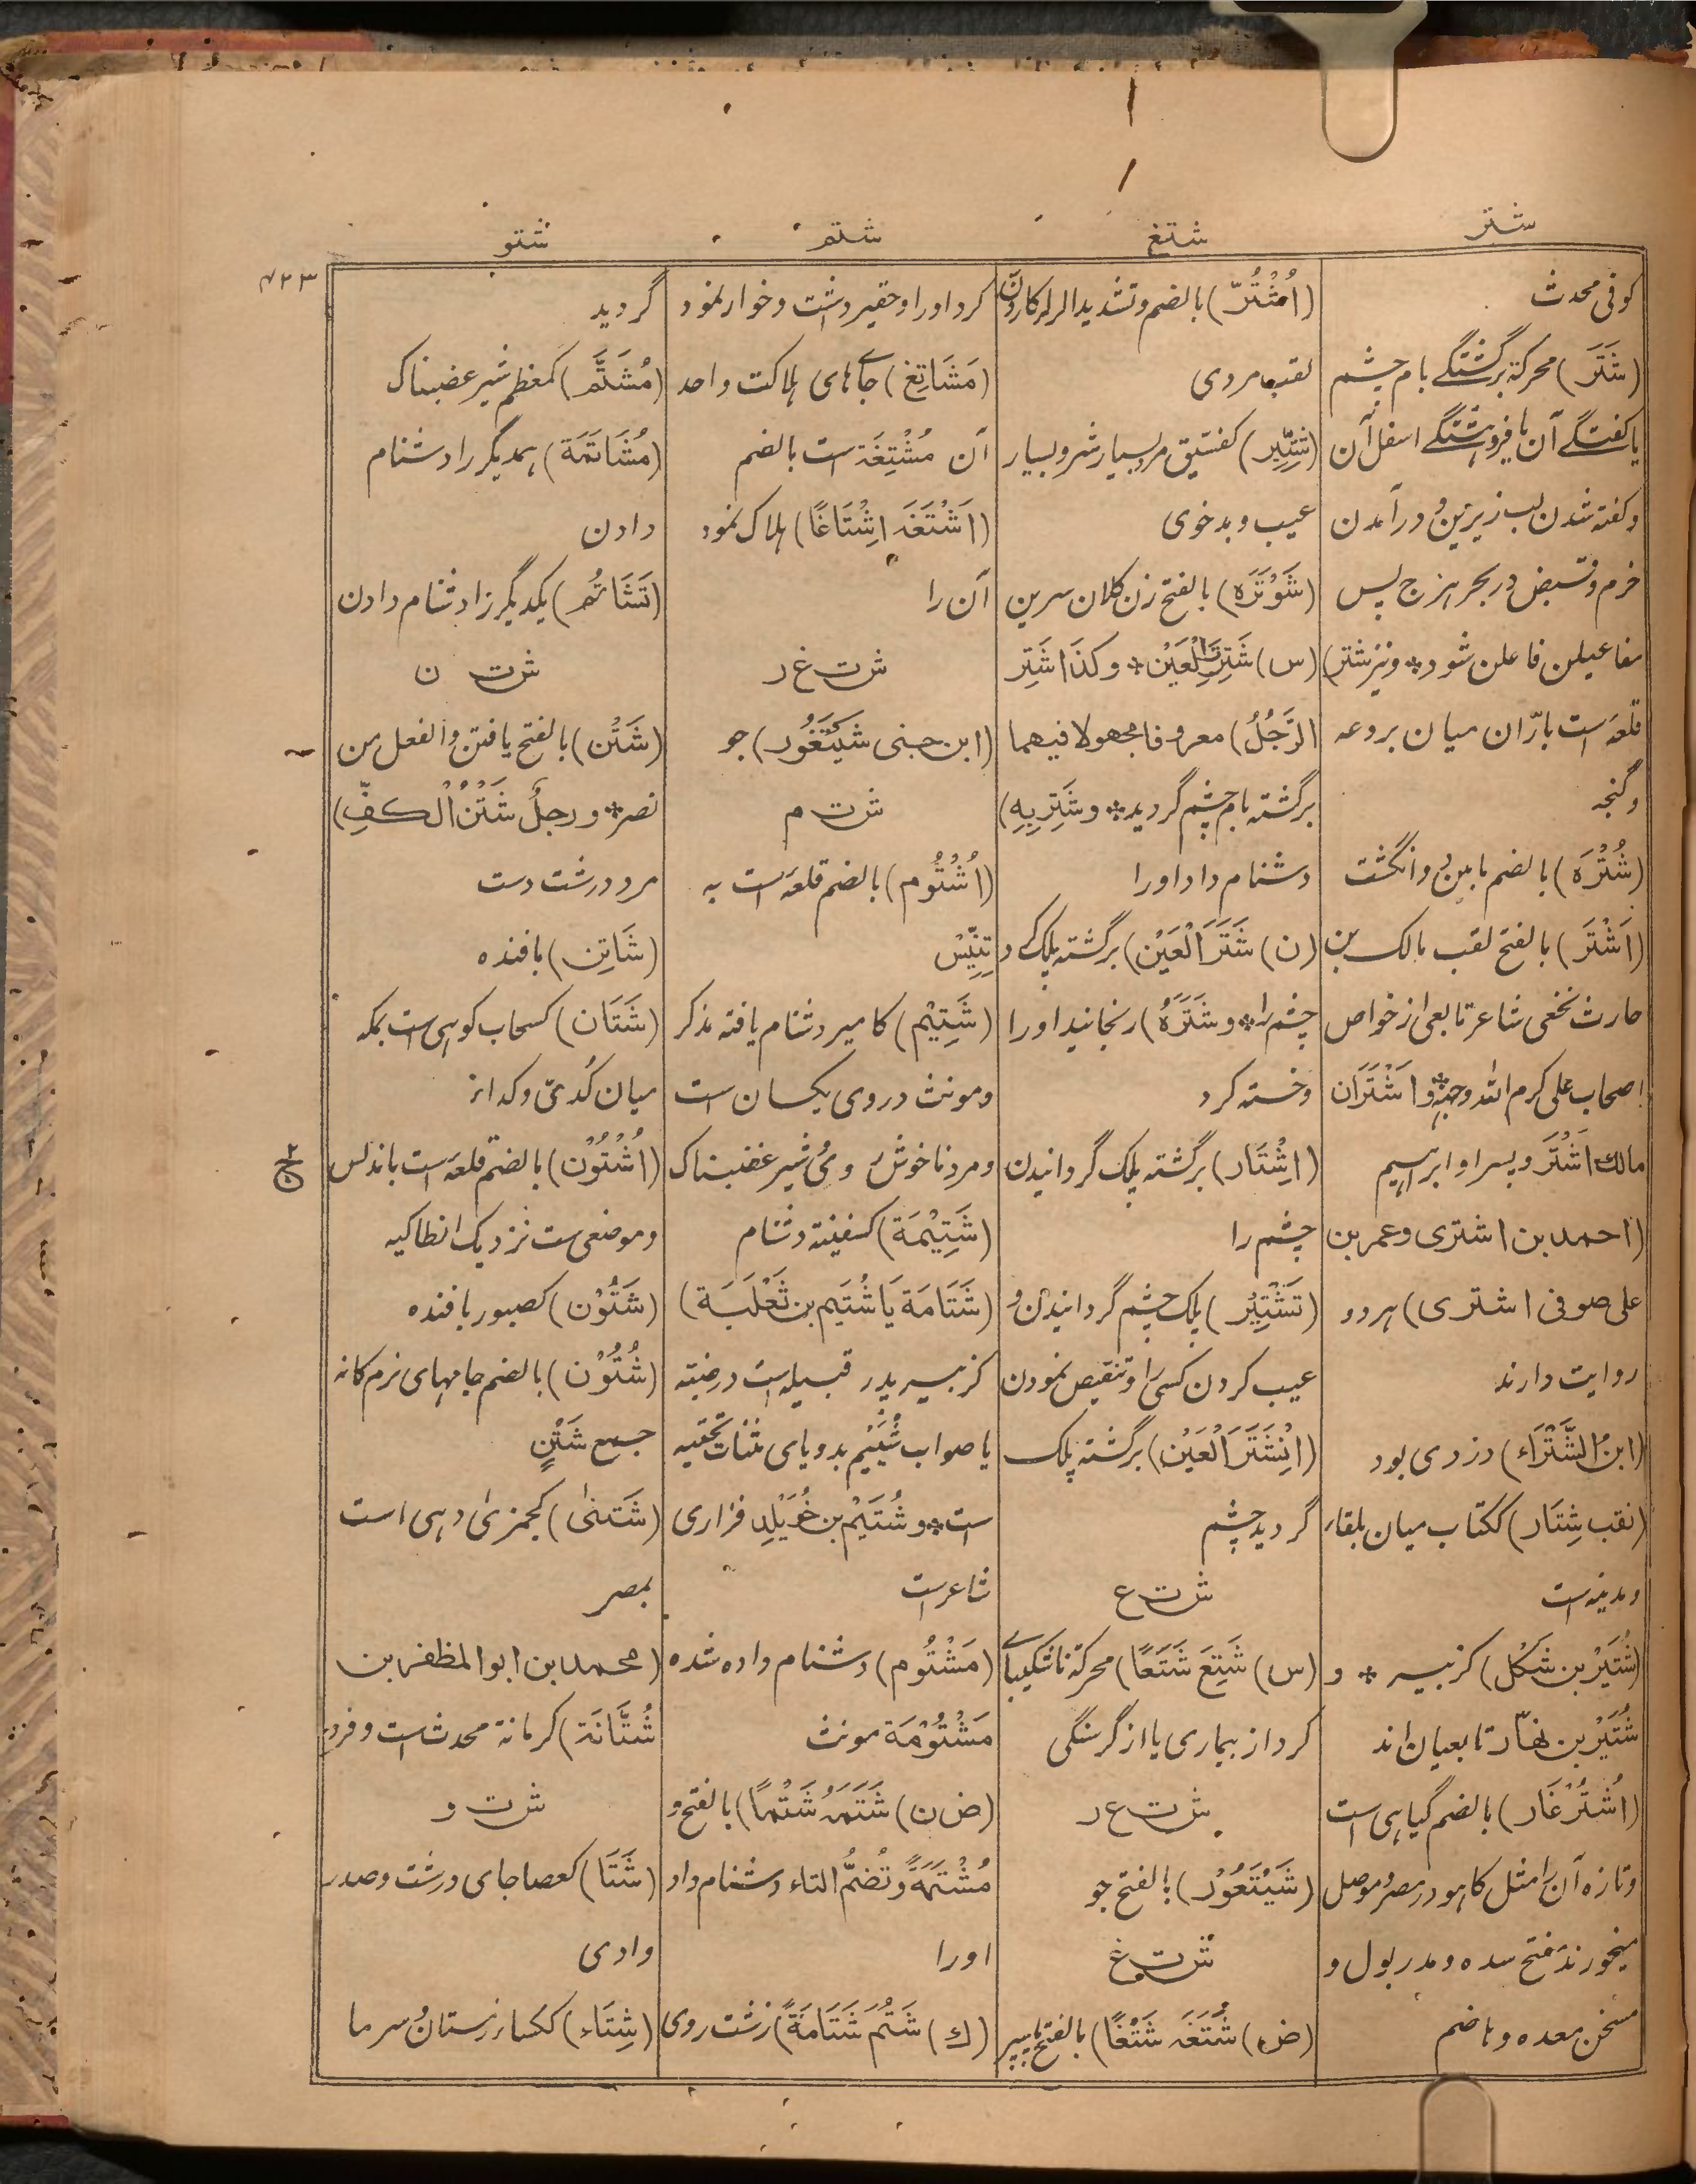 شتر
شتغ
شتم
شتو
۷۲۳
کوفی محدث
(شَتَر) محرکة برگشتگے بام چشم
یا کفتگے آن یا فروهشتگے اسفل آن
و کفته شدن لب زیرین و در آمدن
خرم و قبض در بحر هزج پس
مفاعیلن فاعلن شود* و نیز شتر)
قلعه است بارّان میان بردعه
و گنجه
(شُتْرَة) بالضم ما بین دو انگشت
(اَشْتَر) بالفتح لقب مالک بن
حارث نخعی شاعر تابعی از خواص
اصحاب علی کرم الله وجهه* و اَشْتَرَان
مالك اَشْتَر و پسر او ابراهیم
(احمد بن اشتری و عمر بن
علی صوفی اشتری) هر دو
روایت دارند
(ابنُ الشَّتْرَاء) دزدی بود
(نقب شِتَار) ککتاب میان بلقاء
و مدینه است
(شُتَیْر بن شَکَل) کزبیر * و
شُتَیْر بن نهار تابعیان اند
(اُشْتُرْغَار) بالضم گیاهی است
و تازه آن را مثل کاهو در مصر و موصل
میخورند مفتح سده و مدر بول و
مسخن معده و هاضم
(اُشْتُرّ) بالضم و تشدید الراء
لقب مردی
(شِتِّیر) کفسّیق مرد بسیار شر و بسیار
عیب و بدخوی
(شَوْتَرَه) بالفتح زن کلان سرین
(س) شَتِرَتِ الْعَیْن* و کذا شَتِر
الرَّجُلُ) معروفا و مجهولا فیهما
برگشته بام چشم گردید* و شَتِرَ بِهِ)
دشنام داد او را
(ن) شَتَرَ الْعَیْن) برگشته پلک کرد
چشم را* و شَتَرَهُ) رنجانید او را
و خسته کرد
(اِشْتَار) برگشته پلک گردانیدن
چشم را
(تَشْتِیْر) پلک چشم گردانیدن و
عیب کردن کسی را و تنقیص نمودن
(اِنْشَتَرَ الْعَیْن) برگشته پلک
گردید چشم
ش ت ع
(س) شَتِعَ شَتَعًا) محرکة ناشکیبائے
کرد از بیماری یا از گرسنگی
ش ت ع ر
(شَیْتَعُوْر) بالفتح جو
ش ت غ
(ض) شَتَغَه شَتْغًا) بالفتح پایسپر
کرد او را و حقیر داشت و خوار نمود
(مَشَاتِغ) جاے های هلاکت واحد
آن مُشْتِغَة است بالضم
(اَشْتَغَه اِشْتَاغًا) هلاک نمود
آن را
ش ت غ ر
(ابن جنی شَیْتَغُور) جو
ش ت م
(اُشْتُوم) بالضم قلعه است به
تِنِّیْس
(شَتِیْم) کامیر دشنام یافته مذکر
و مونث در وی یکسان است
و مرد ناخوش روی و شیر غضبناک
(شَتِیْمَة) کسفینة دشنام
(شَتَامَة یَا شُتَیْم بن ثَعْلَبَة)
کزبیر پدر قبیله است در ضبه
یا صواب شُیَیْم بدو یای مثنات تحتیه
است* و شُتَیْم بن خُوَیْلِد فزاری
شاعر است
(مَشْتُوم) دشنام داده شده
مَشْتُوْمَة مونث
(ض ن) شَتَمَهُ شَتْمًا) بالفتح و
مُشْتَمَةً وَ تُضَمُّ التاء دشنام داد
او را
(ك) شَتُمَ شَتَامَةً) زشت روی
گردید
(مُشَتَّم) کمعظم شیر غضبناک
(مُشَاتَمَة) همدیگر را دشنام
دادن
(تَشَاتُم) یکدیگر را دشنام دادن
ش ت ن
(شَتْن) بالفتح یافتن و الفعل من
نصر* و رجلٌ شَتْنُ الْكفِّ)
مرد درشت دست
(شَاتِن) بافنده
(شَتَان) کسحاب کوهی است بمکه
میان کُدیّ و کداء
(اُشْتُوْن) بالضم قلعه است باندلس
و موضعی ست نزدیک انطاکیه
(شَتُوْن) کصبور بافنده
(شُتُوْن) بالضم جامهای نرم کانه
جمع شَتْنٍ
(شَتَنیٰ) کجمزی دهی است
بمصر
(محمد بن ابو المظفر بن
شُتَّانَة) کرمانة محدث است و فرد
ش ت و
(شَتَا) کعصا جای درشت و صدر
وادی
(شِتَاء) ککساء زمستان و سرما